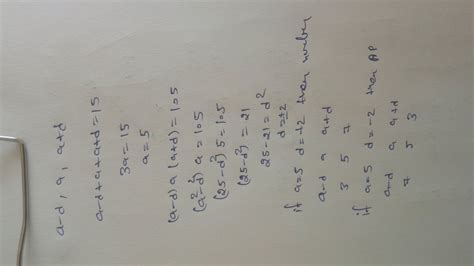 a-d, a, a+d
a-d+a+a+d=15
3a=15
a=5
(a-d) a (a+d)=105
(a²-d²) a=105
(25-d²) 5=105
(25-d²)=21
25-21=d²
d=±2
if a=5 d=+2 then number
a-d a a+d
3 5 7
if a=5 d=-2 then AP
a-d a a+d
7 5 3